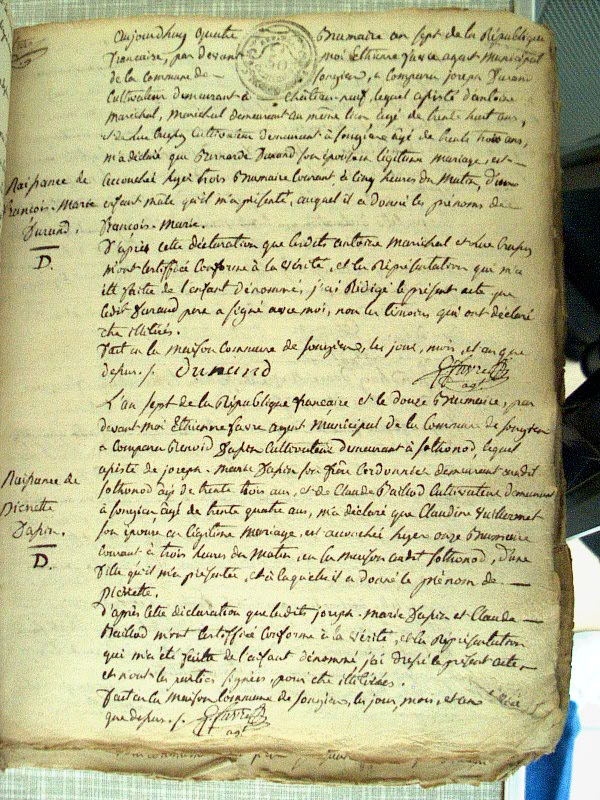 aujourdhuy quatre Brumaire an sept de la République
francaise, par devant moi Etienne favre agent Municipal
de la commune de songieu, a comparu joseph Durand
cultivateur demeurant à chateau neuf, lequel assisté d'antoine
maréchal, Maréchal demeurant au même lieu agé de trente huit ans,
et de Luc Cultivateur demeurant à songieu agé de trente trois ans,
m'a déclaré que Bernarde Durand son épouse en légitime mariage, est
accouchée hyer trois Brumaire courant à cinq heures du Matin d'un
enfant mâle qu'il m'a présenté, auquel il a donné les prénoms de
françois-marie.
Naissance de
françois-Marie
Durand.
D.
D'après cette déclaration que lesdits antoine Maréchal et Luc
m'ont certifiée conforme à la vérité, et la Représentation qui m'a
été faite de l'enfant dénommé, j'ai Rédigé le présent acte que
ledit Durand pere a signé avec moi, non les témoins qui ont déclaré
être illitérés.
fait en la maison commune de songieu, les jour, mois, et an que
depuis. /. durand
favre
agt
L'an sept de la République francaise et le douze Brumaire, par
devant moi Ethienne favre agent Municipal de la Commune de songieu
a comparu Benoid Dapin Cultivateur demeurant à sothonod, lequel
assisté de joseph-marie Dapin son frère Cordonnier demeurant audit
sothonod agé de trente trois ans, et de Claude Baillod Cultivateur demeurant
à songieu agé de trente quatre ans, m'a déclaré que Claudine Vuillermet
son épouse en légitime Mariage, est accouchée hyer onze Brumaire
courant à trois heures du Matin, en la maison audit sothonod, d'une
fille qu'il m'a présentée, et à laquelle il a donné le prénom de
pierrette.
Naissance de
Pierrette
Dapin.
D.
d'après cette déclaration que lesdits joseph-marie Dapin et Claude
Baillod m'ont certiffiée conforme à la vérité, et la Représentation
qui m'a été faite de l'enfant dénommé j'ai dressé le présent acte,
et non les parties signées, pour être illitérées.
fait en la Maison Commune de songieu, les jour, mois, et an
que depuis. /. favre
agt